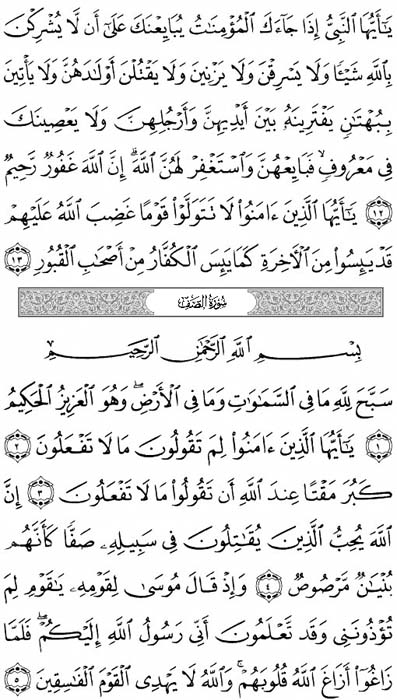 يَـٰٓأَيُّهَا ٱلنَّبِيُّ إِذَا جَآءَكَ ٱلْمُؤْمِنَـٰتُ يُبَايِعْنَكَ عَلَىٰٓ أَن لَّا يُشْرِكْنَ
بِٱللَّهِ شَيْـًٔا وَلَا يَسْرِقْنَ وَلَا يَزْنِينَ وَلَا يَقْتُلْنَ أَوْلَـٰدَهُنَّ وَلَا يَأْتِينَ
بِبُهْتَـٰنٍ يَفْتَرِينَهُۥ بَيْنَ أَيْدِيهِنَّ وَأَرْجُلِهِنَّ وَلَا يَعْصِينَكَ
فِى مَعْرُوفٍ ۙ فَبَايِعْهُنَّ وَٱسْتَغْفِرْ لَهُنَّ ٱللَّهَ ۖ إِنَّ ٱللَّهَ غَفُورٌ رَّحِيمٌ
﴿١٢﴾ يَـٰٓأَيُّهَا ٱلَّذِينَ ءَامَنُوا۟ لَا تَتَوَلَّوْا۟ قَوْمًا غَضِبَ ٱللَّهُ عَلَيْهِمْ
قَدْ يَئِسُوا۟ مِنَ ٱلْـَٔاخِرَةِ كَمَا يَئِسَ ٱلْكُفَّارُ مِنْ أَصْحَـٰبِ ٱلْقُبُورِ ﴿١٣﴾
سُورَةُ الصَّفِّ
بِسْمِ ٱللَّهِ ٱلرَّحْمَـٰنِ ٱلرَّحِيمِ
سَبَّحَ لِلَّهِ مَا فِى ٱلسَّمَـٰوَٰتِ وَمَا فِى ٱلْأَرْضِ ۖ وَهُوَ ٱلْعَزِيزُ ٱلْحَكِيمُ
﴿١﴾ يَـٰٓأَيُّهَا ٱلَّذِينَ ءَامَنُوا۟ لِمَ تَقُولُونَ مَا لَا تَفْعَلُونَ ﴿٢﴾
كَبُرَ مَقْتًا عِندَ ٱللَّهِ أَن تَقُولُوا۟ مَا لَا تَفْعَلُونَ ﴿٣﴾ إِنَّ
ٱللَّهَ يُحِبُّ ٱلَّذِينَ يُقَـٰتِلُونَ فِى سَبِيلِهِۦ صَفًّا كَأَنَّهُم
بُنْيَـٰنٌ مَّرْصُوصٌ ﴿٤﴾ وَإِذْ قَالَ مُوسَىٰ لِقَوْمِهِۦ يَـٰقَوْمِ لِمَ
تُؤْذُونَنِى وَقَد تَّعْلَمُونَ أَنِّى رَسُولُ ٱللَّهِ إِلَيْكُمْ ۖ فَلَمَّا
زَاغُوٓا۟ أَزَاغَ ٱللَّهُ قُلُوبَهُمْ ۚ وَٱللَّهُ لَا يَهْدِى ٱلْقَوْمَ ٱلْفَـٰسِقِينَ ﴿٥﴾